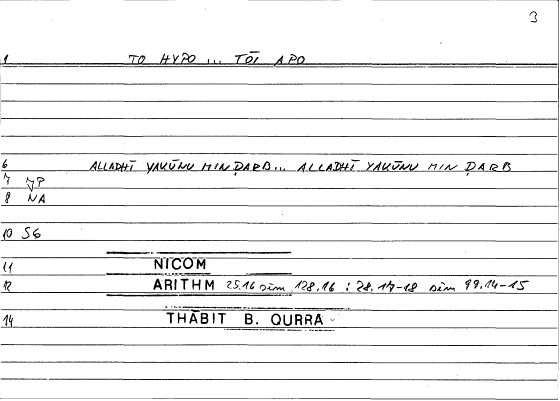 3
1 TO HYPO ... TŌI APO
6 ALLADHĪ YAKŪNU MIN ḌARB... ALLADHĪ YAKŪNU MIN ḌARB
7 JP
8 NA
10 S6
11 NICOM
12 ARITHM 25.16 sim 128.16 : 28.17-18 sim 99.14-15
14 THĀBIT B. QURRA